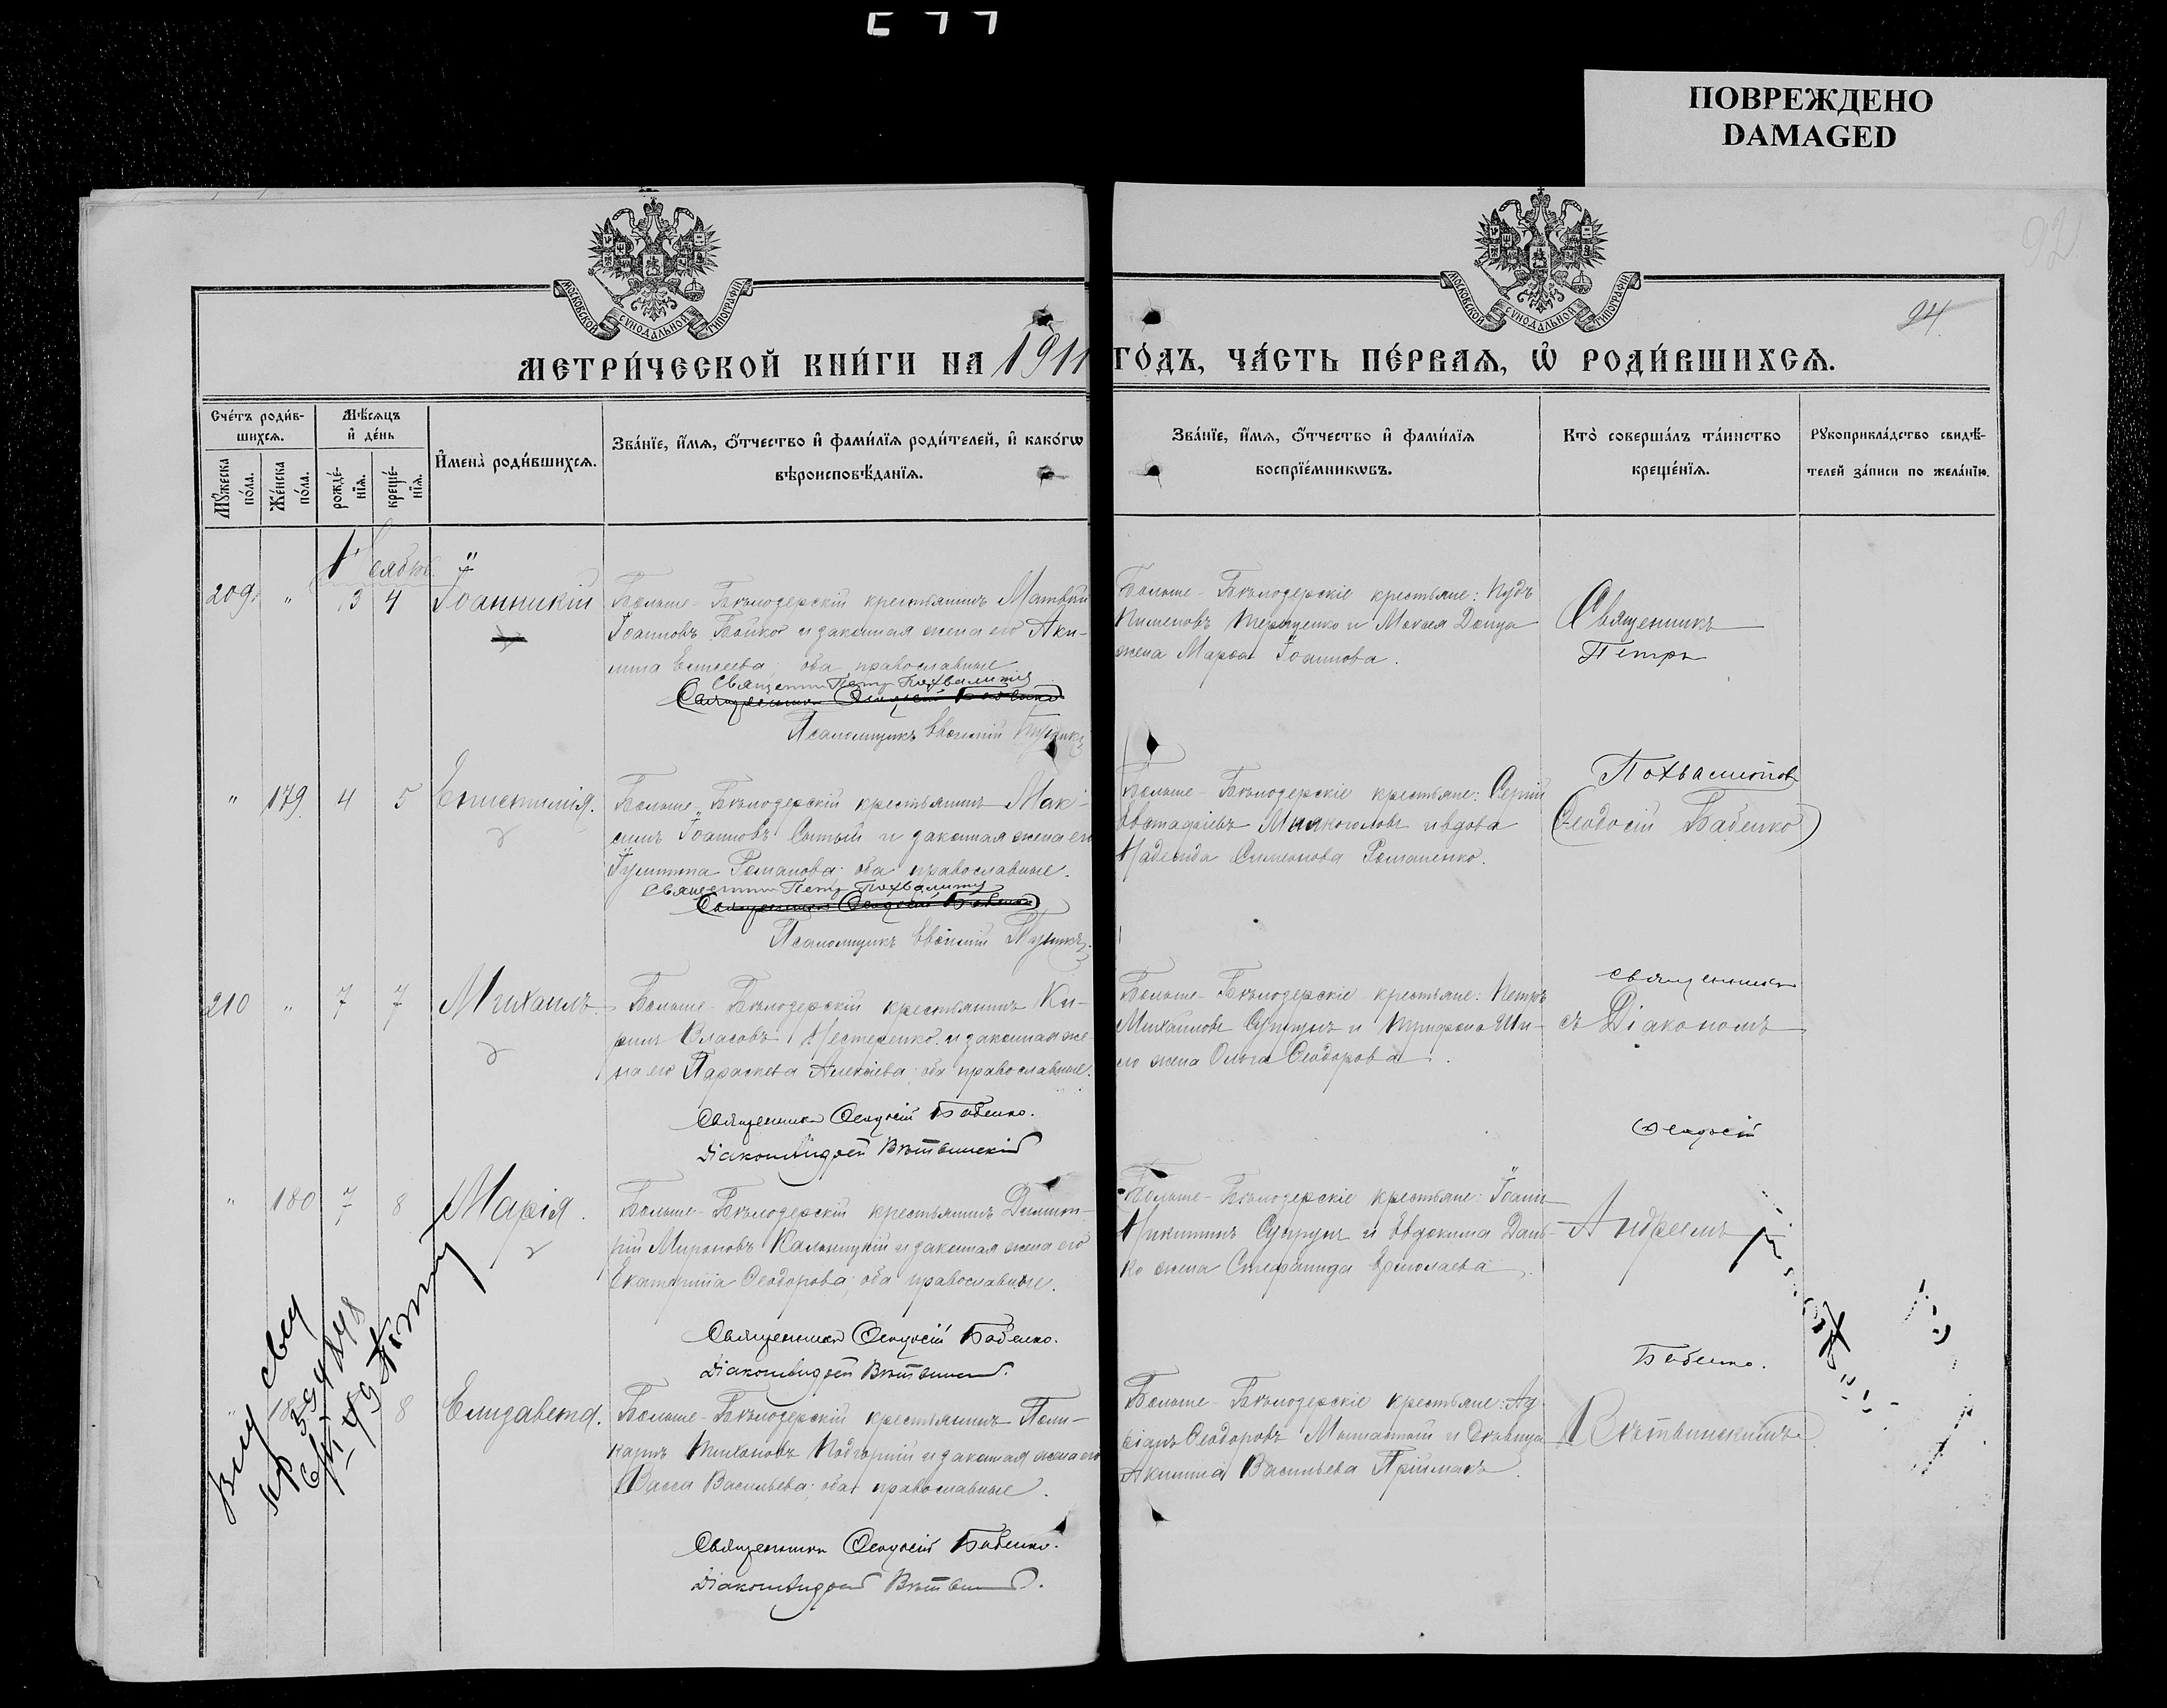 ПОВРЕЖДЕНО
DAMAGED
92
МОСКОВСКОЙ СУНОДАЛЬНОЙ ТИПОГРАФІИ
МОСКОВСКОЙ СУНОДАЛЬНОЙ ТИПОГРАФІИ
24.
МЕТРИ́ЧЕСКОЙ КНИ́ГИ НА 1911 ГО́ДЪ, ЧА́СТЬ ПЕ́РВАЯ, Ѽ РОДИ́ВШИХСЯ.
Сче́тъ роди́в-
шихсѧ.
Мꙋ́жеска по́ла.
Же́нска по́ла.
Мѣ́сѧцъ
и҆ де́нь
рожде́-
нїѧ.
креще́-
нїѧ.
И҆мена̀ роди́вшихсѧ.
Зва́нїе, и҆́мѧ, ѻ҆́тчество и҆ фами́лїѧ роди́телей, и҆ како́гѡ
вѣроисповѣ́данїѧ.
Зва́нїе, и҆́мѧ, ѻ҆́тчество и҆ фами́лїѧ
воспрїе́мникѡвъ.
Кто̀ соверша́лъ та́инство
креще́нїѧ.
Рꙋкоприкла́дство свидѣ́-
телей за́писи по жела́нїю.
209. " 3 4 Іоанникій
Больше-Бѣлозерскій крестьянинъ Матвѣй
Іоанновъ Бойко и законная жена его Аки-
лина Евсеева; оба православные
Священникъ Петръ Похвалитовъ
Псаломщикъ Евгеній
Больше-Бѣлозерскіе крестьяне:
Пименовъ Терещенко и Доица
жена Марѳа Іоаннова.
Священникъ
Петръ
" 179. 4 5
Больше-Бѣлозерскій крестьянинъ Мак-
симъ Іоанновъ Сытый и законная жена его
Іулитта Романова; оба православные.
Священникъ Петръ Похвалитовъ
Псаломщикъ Евгеній
Больше-Бѣлозерскіе крестьяне: Сергій
Евстафіевъ и вдова
Надежда Симеонова Романенко.
Похвалитовъ
(Ѳеодосій Бабенко)
210 " 7 7 Михаилъ
Больше-Бѣлозерскій крестьянинъ Ки-
риллъ Власовъ Нестеренко и законная же-
на его Параскева Алексіева; оба православные.
Священникъ Ѳеодосій Бабенко.
Діаконъ Андрей Вѣтвинскій
Больше-Бѣлозерскіе крестьяне: Петръ
Михайловъ Супрунъ и Трифона Ши-
ло жена Ольга Ѳеодорова.
Священникъ
съ Діакономъ
Ѳеодосій
" 180 7 8 Марія.
Больше-Бѣлозерскій крестьянинъ Димит-
рій Мироновъ Кальницкій и законная жена его
Екатерина Ѳеодорова; оба православные.
Священникъ Ѳеодосій Бабенко.
Діаконъ Андрей Вѣтвинскій.
Больше-Бѣлозерскіе крестьяне: Іоаннъ
Никитинъ Супрунъ и Евдокима Дань-
ко жена Стефанида Ермолаева.
Андреемъ
Бабенко.
8 Елизавета.
Больше-Бѣлозерскій крестьянинъ Поли-
карпъ Тихоновъ Подгорный и законная жена его
Васса Васильева; оба православные.
Священникъ Ѳеодосій Бабенко.
Діаконъ Андрей Вѣтвинскій.
Больше-Бѣлозерскіе крестьяне:
Ѳеодоровъ и дѣвица
Акилина Васильева Пріймакъ.
Вѣтвинскимъ